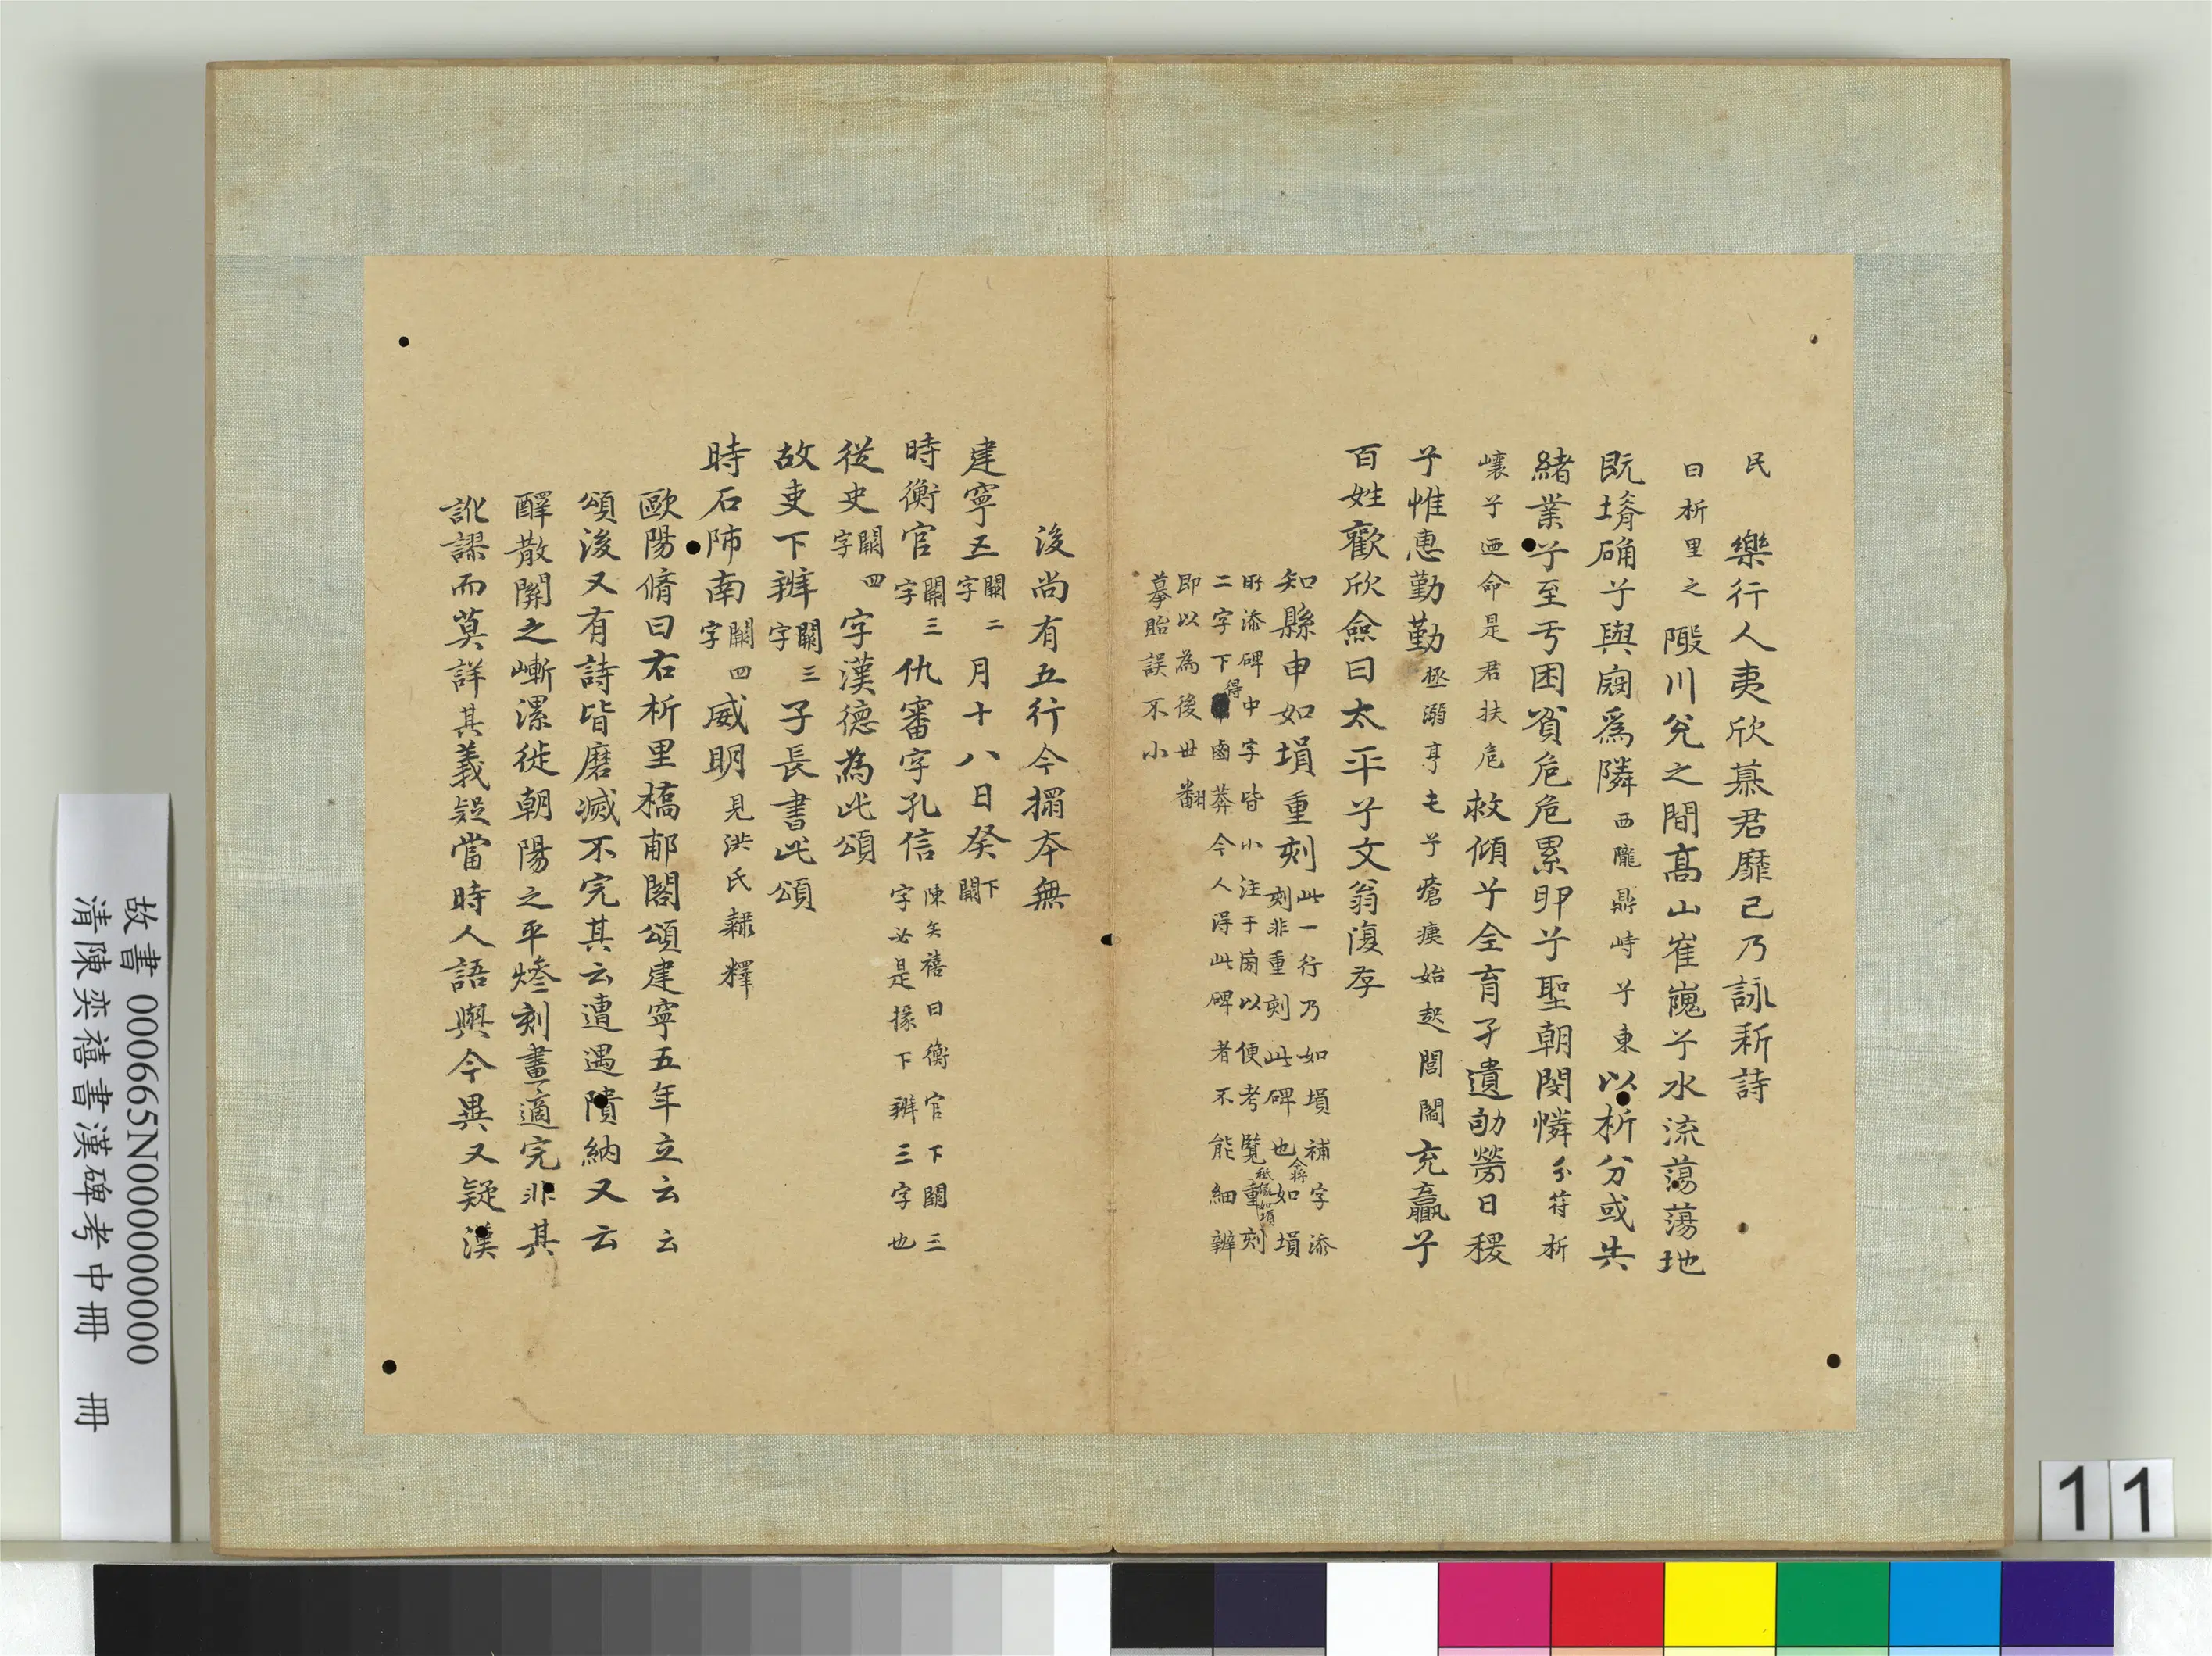 民　樂行人夷欣慕君靡已乃詠新詩
曰析里之隒川兌之間高山崔嵬兮水流蕩蕩地
既塉确兮與寇爲隣西隴鼎峙兮東以析分或失
緒業兮至于困貧危危累卵兮聖朝閔憐分符析
壤兮迺命是君扶危救傾兮全育孑遺劬勞日稷
兮惟惠勤勤拯溺亨屯兮瘡痍始起閭閻充贏兮
百姓歡欣僉曰太平兮文翁復存
知縣申如塤重刻
此一行乃如塤補字添
刻非重刻此碑也今將如塤
所添碑中字皆小注于匡以便考覽重刻
二字下得鹵莽今人得此碑者不能細辨
即以為後世翻
摹貽誤不小
後尚有五行今搨本無
建寧五闕二字月十八日癸下闕
時衡官闕三字仇審字孔信
陳奕禧曰衡官下闕三
字必是掾下辨三字也
從史闕四字字漢德為此頌
故吏下辨闕三字子長書此頌
時石師南闕四字威明見洪氏隸釋
歐陽脩曰右析里橋郙閣頌建寧五年立云云
頌後又有詩皆磨滅不完其云遭遇隤納又云
醳散關之嶃漯徙朝陽之平燣刻畫適完非其
訛謬而莫詳其義疑當時人語與今異又疑漢
故書 000665N000000000
清陳奕禧書漢碑考中冊　冊
11